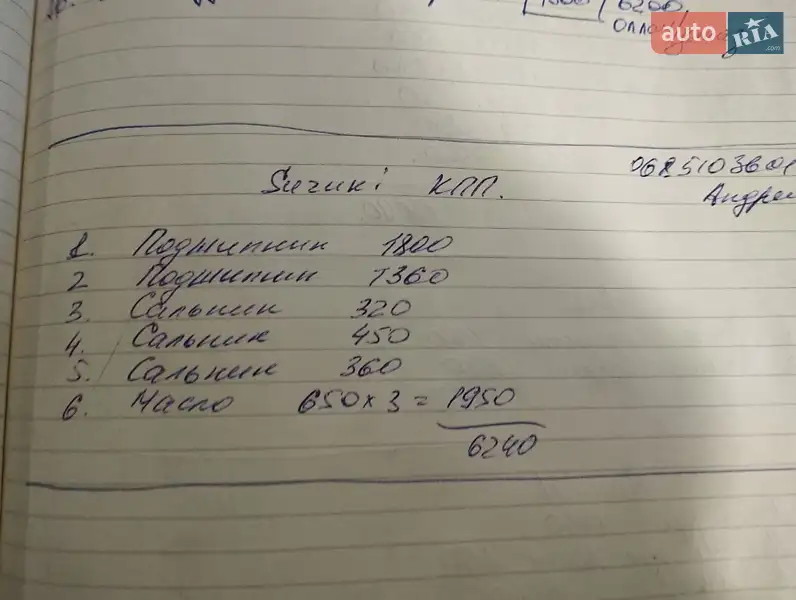 6200
auto RIA .com
Suzuki КПП.
0685103601
Андрей
1. Подшипник 1800
2 Подшипник 1360
3. Сальник 320
4. Сальник 450
5. Сальник 360
6. Масло 650 x 3 = 1950
6240